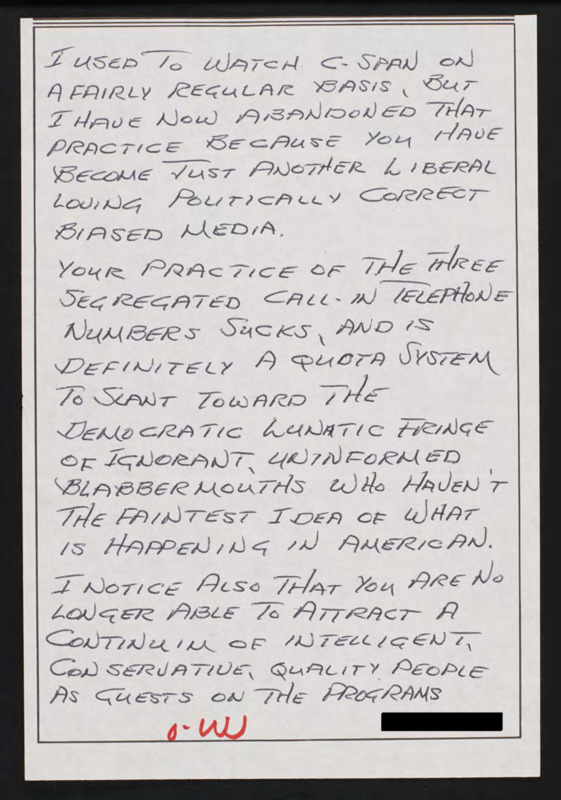 I USED TO WATCH C-SPAN ON
A FAIRLY REGULAR BASIS, BUT
I HAVE NOW ABANDONED THAT
PRACTICE BECAUSE YOU HAVE
BECOME JUST ANOTHER LIBERAL
LOVING POLITICALLY CORRECT
BIASED MEDIA.
YOUR PRACTICE OF THE THREE
SEGREGATED CALL-IN TELEPHONE
NUMBERS SUCKS, AND IS
DEFINITELY A QUOTA SYSTEM
TO SLANT TOWARD THE
DEMOCRATIC LUNATIC FRINGE
OF IGNORANT, UNINFORMED
BLABBERMOUTHS WHO HAVEN'T
THE FAINTEST IDEA OF WHAT
IS HAPPENING IN AMERICAN.
I NOTICE ALSO THAT YOU ARE NO
LONGER ABLE TO ATTRACT A
CONTINUIM OF INTELLIGENT,
CONSERVATIVE, QUALITY PEOPLE
AS GUESTS ON THE PROGRAMS